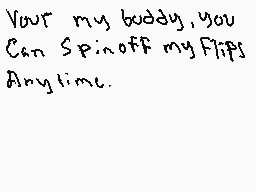 Your my buddy, you
Can Spinoff my Flips
Anytime.